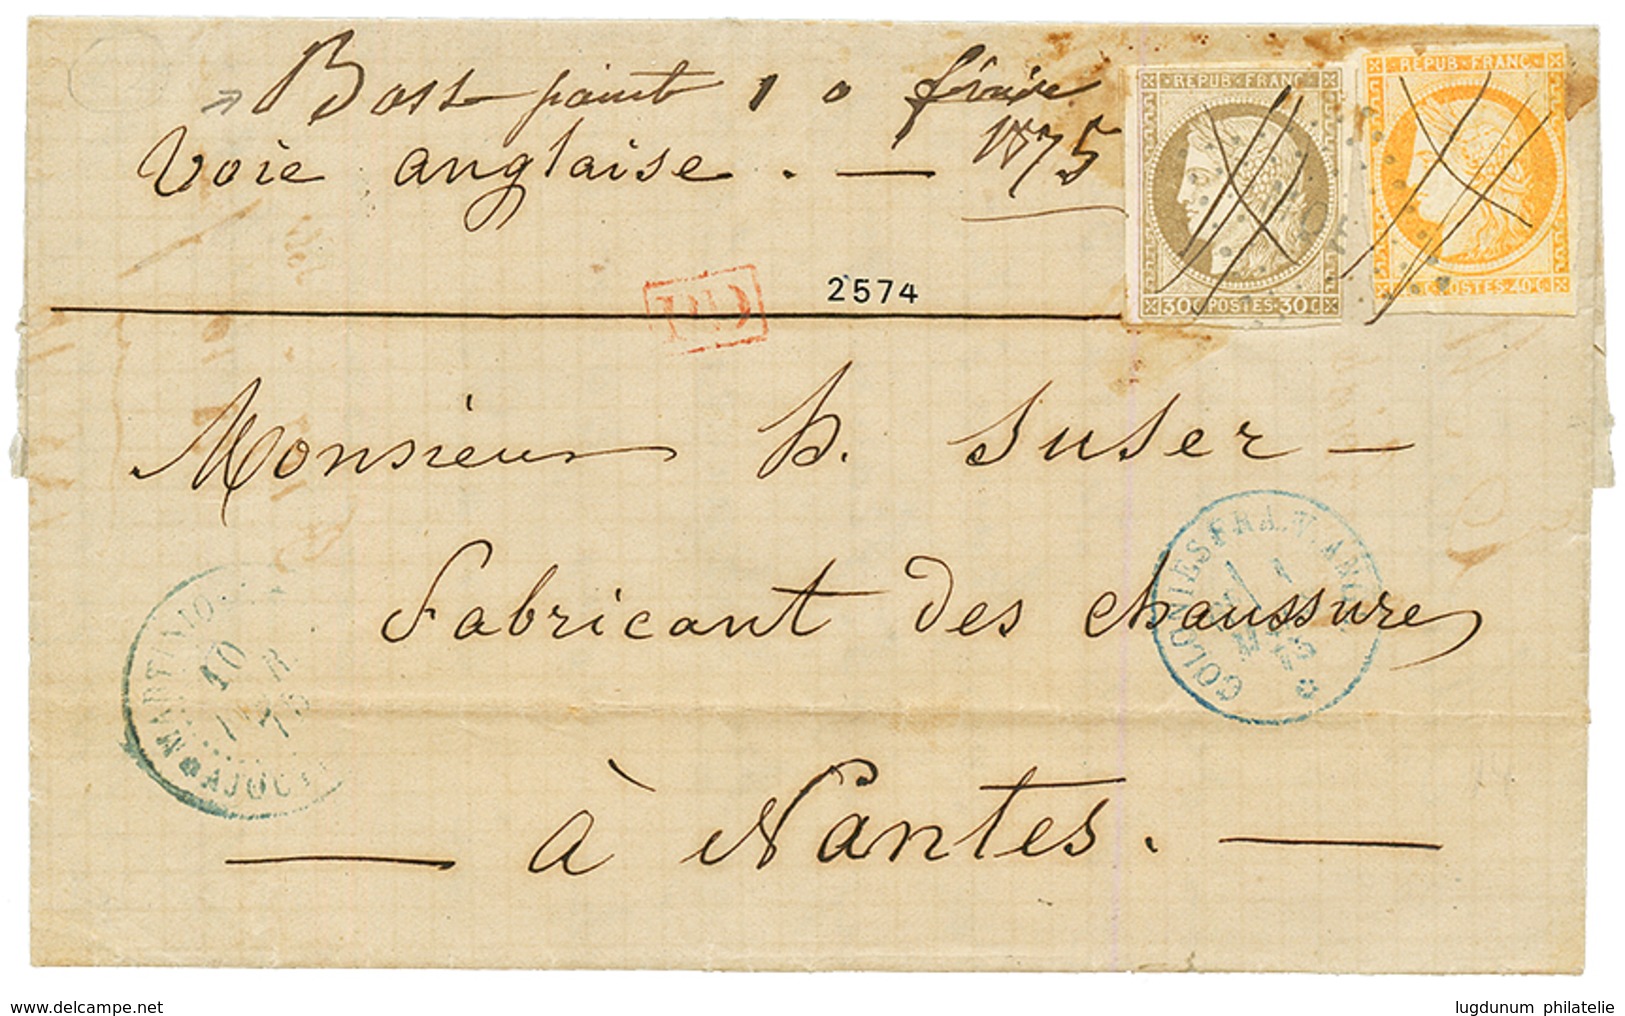 Bass point 10 février
1875
Voie anglaise. —
REPUB·FRANC·
30 C·POSTES·30 C
REPUB·FRANC·
C·POSTES·40 C
PD
2574
Monsieur h. Suser —
Fabricant des chaussures
— à Nantes. —
COLONIES FRA. V. ANGL.
MARTINIQUE
10
75
delcampe.net
lugdunum philatelie